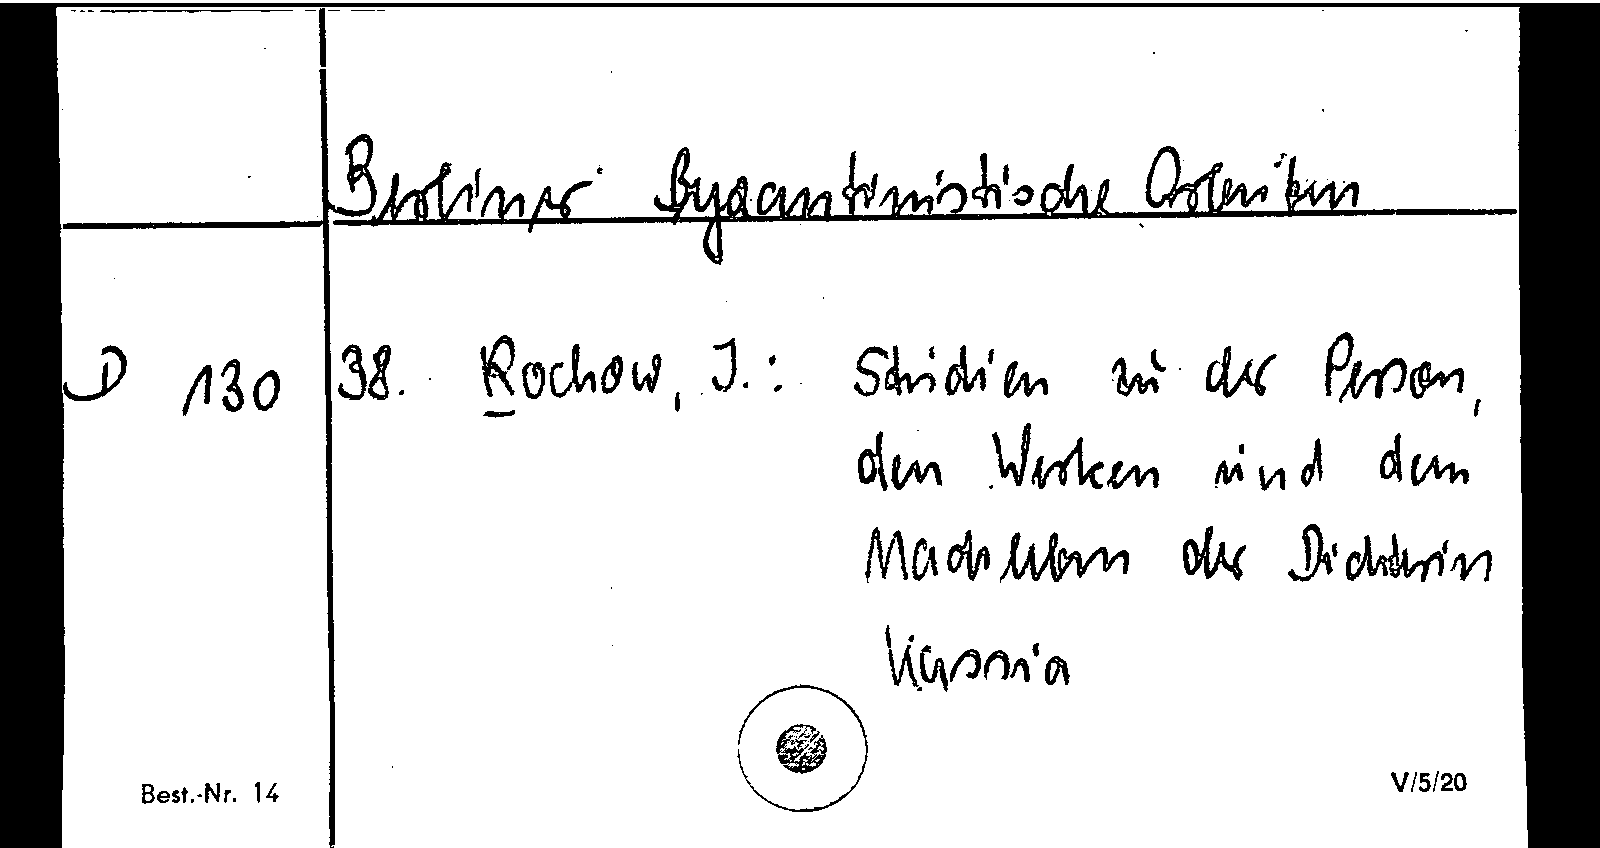 Berliner Byzantinistische Arbeiten
D 130 38. Rochow, I.: Studien zu der Person,
den Werken und dem
Nachleben der Dichterin
Kassia
Best.-Nr. 14 V/5/20